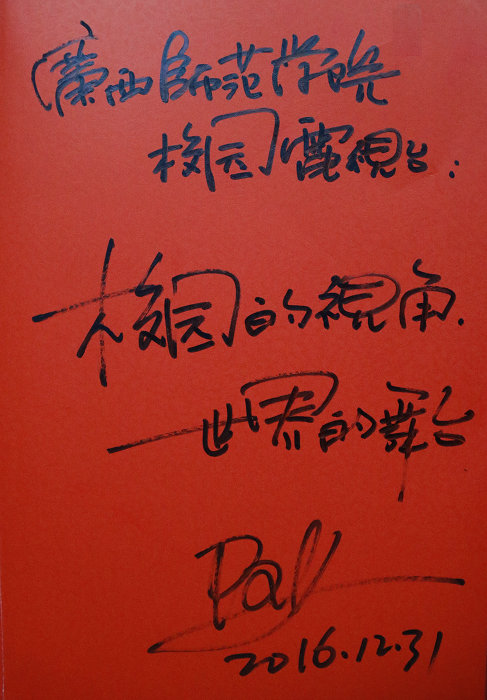 廣西師范学院
校园電視台：
校园的視角.
世界的舞台
2016.12.31